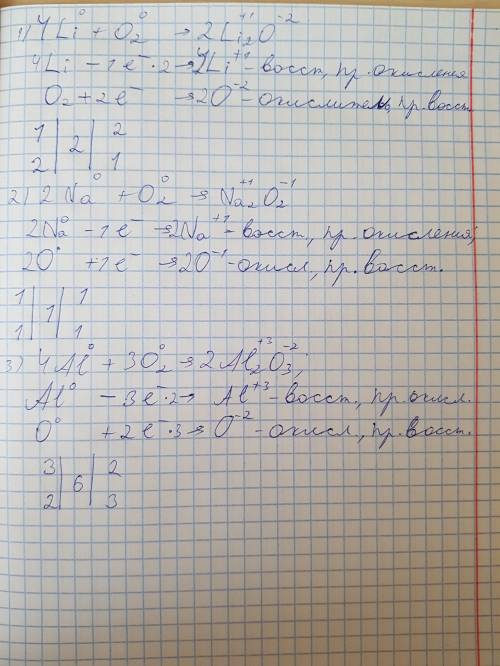 1) 4Li⁰ + O₂⁰ → 2Li₂⁺¹O⁻²
4Li - 1e⁻·2 → 4Li⁺¹ - восст, пр. окисления
O₂ + 2e⁻ → 2O⁻² - окислитель, пр. восст
1 | 2 | 2
2 | | 1
2) 2Na⁰ + O₂⁰ → Na₂⁺¹O₂⁻¹
2Na⁰ - 1e⁻ → 2Na⁺¹ - восст., пр. окисления;
2O⁰ + 1e⁻ → 2O⁻¹ - окисл, пр. восст.
1 | 1 | 1
1 | | 1
3) 4Al⁰ + 3O₂⁰ → 2Al₂⁺³O₃⁻²;
Al⁰ - 3e⁻·2 → Al⁺³ - восст., пр. окисл.
O⁰ + 2e⁻·3 → O⁻² - окисл, пр. восст.
3 | 6 | 2
2 | | 3